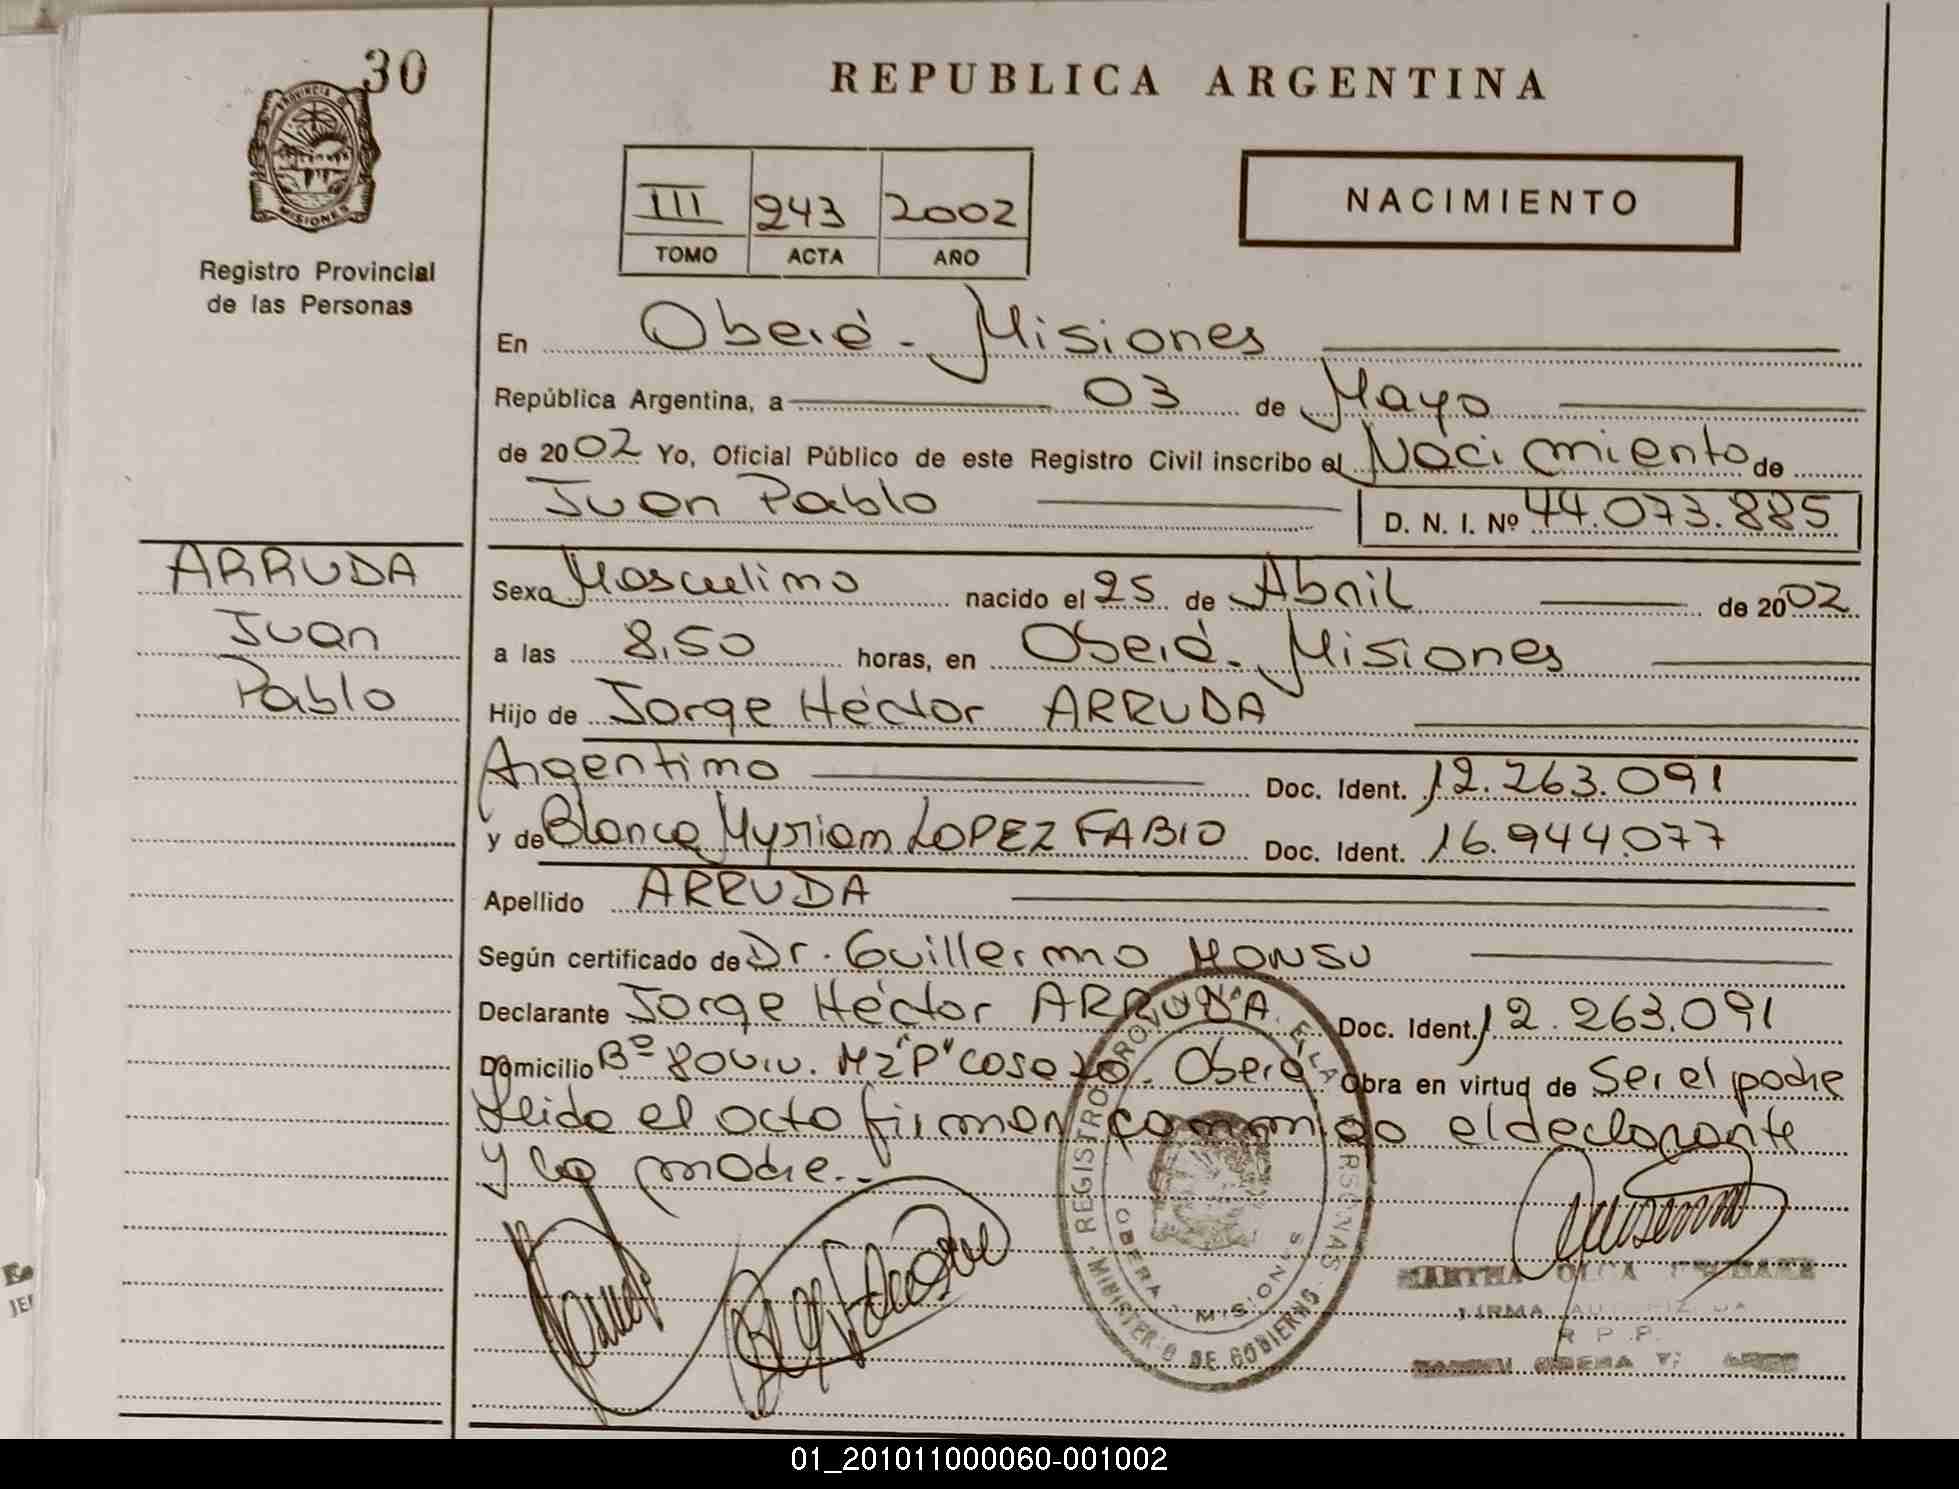 30
PROVINCIA D
MISIONES
Registro Provincial
de las Personas
ARRUDA
Juan
Pablo
REPUBLICA ARGENTINA
NACIMIENTO
III 243 2002
TOMO ACTA AÑO
En Oberá - Misiones
República Argentina, a 03 de Mayo
de 2002 Yo, Oficial Público de este Registro Civil inscribo el Nacimiento de
Juan Pablo D. N. I. Nº 44.073.885
Sexo Masculino nacido el 25 de Abril de 2002
a las 8,50 horas, en Oberá - Misiones
Hijo de Jorge Héctor ARRUDA
Argentino Doc. Ident. 12.263.091
y de Blanca Myriam LOPEZ FABIO Doc. Ident. 16.944.077
Apellido ARRUDA
Según certificado de Dr. Guillermo MONSU
Declarante Jorge Héctor ARRUDA Doc. Ident. 12.263.091
Domicilio Bº 80 Viv. Mz "P" casa 20. Oberá Obra en virtud de Ser el padre
Leida el acta firman conmigo el declarante
y la madre.-
REGISTRO PROVINCIAL DE LAS PERSONAS
OBERA - MISIONES
MINISTERIO DE GOBIERNO
MARTHA OLGA
FIRMA AUTORIZADA
R.P.P.
OBERA
JEF
01_201011000060-001002